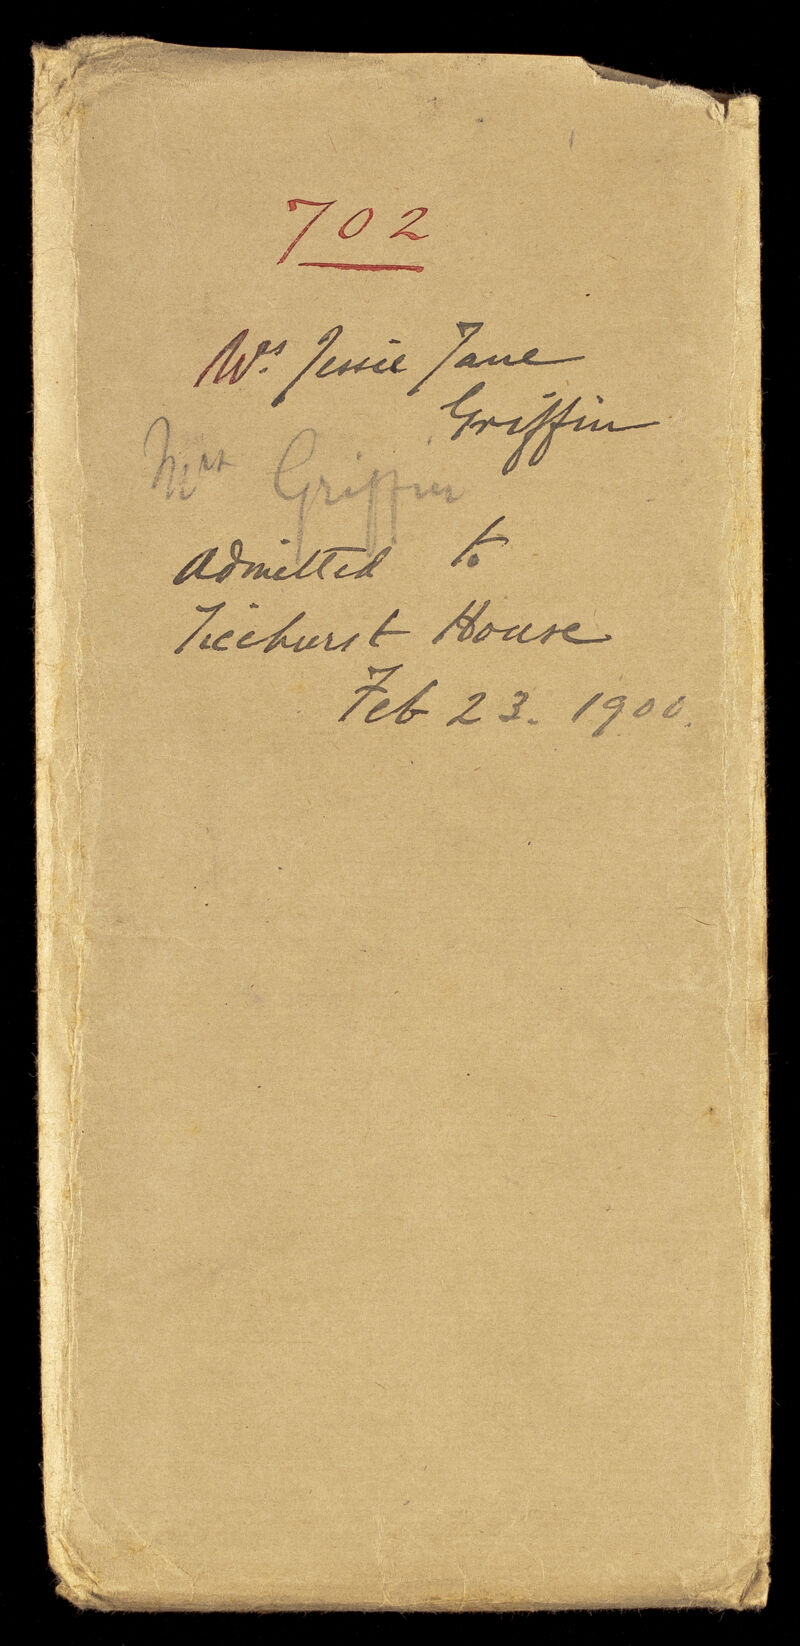 702
Mrs. Jessie Jane
Griffin
Mrs Griffin
Admitted to
Ticehurst House
Feb 23. 1900.